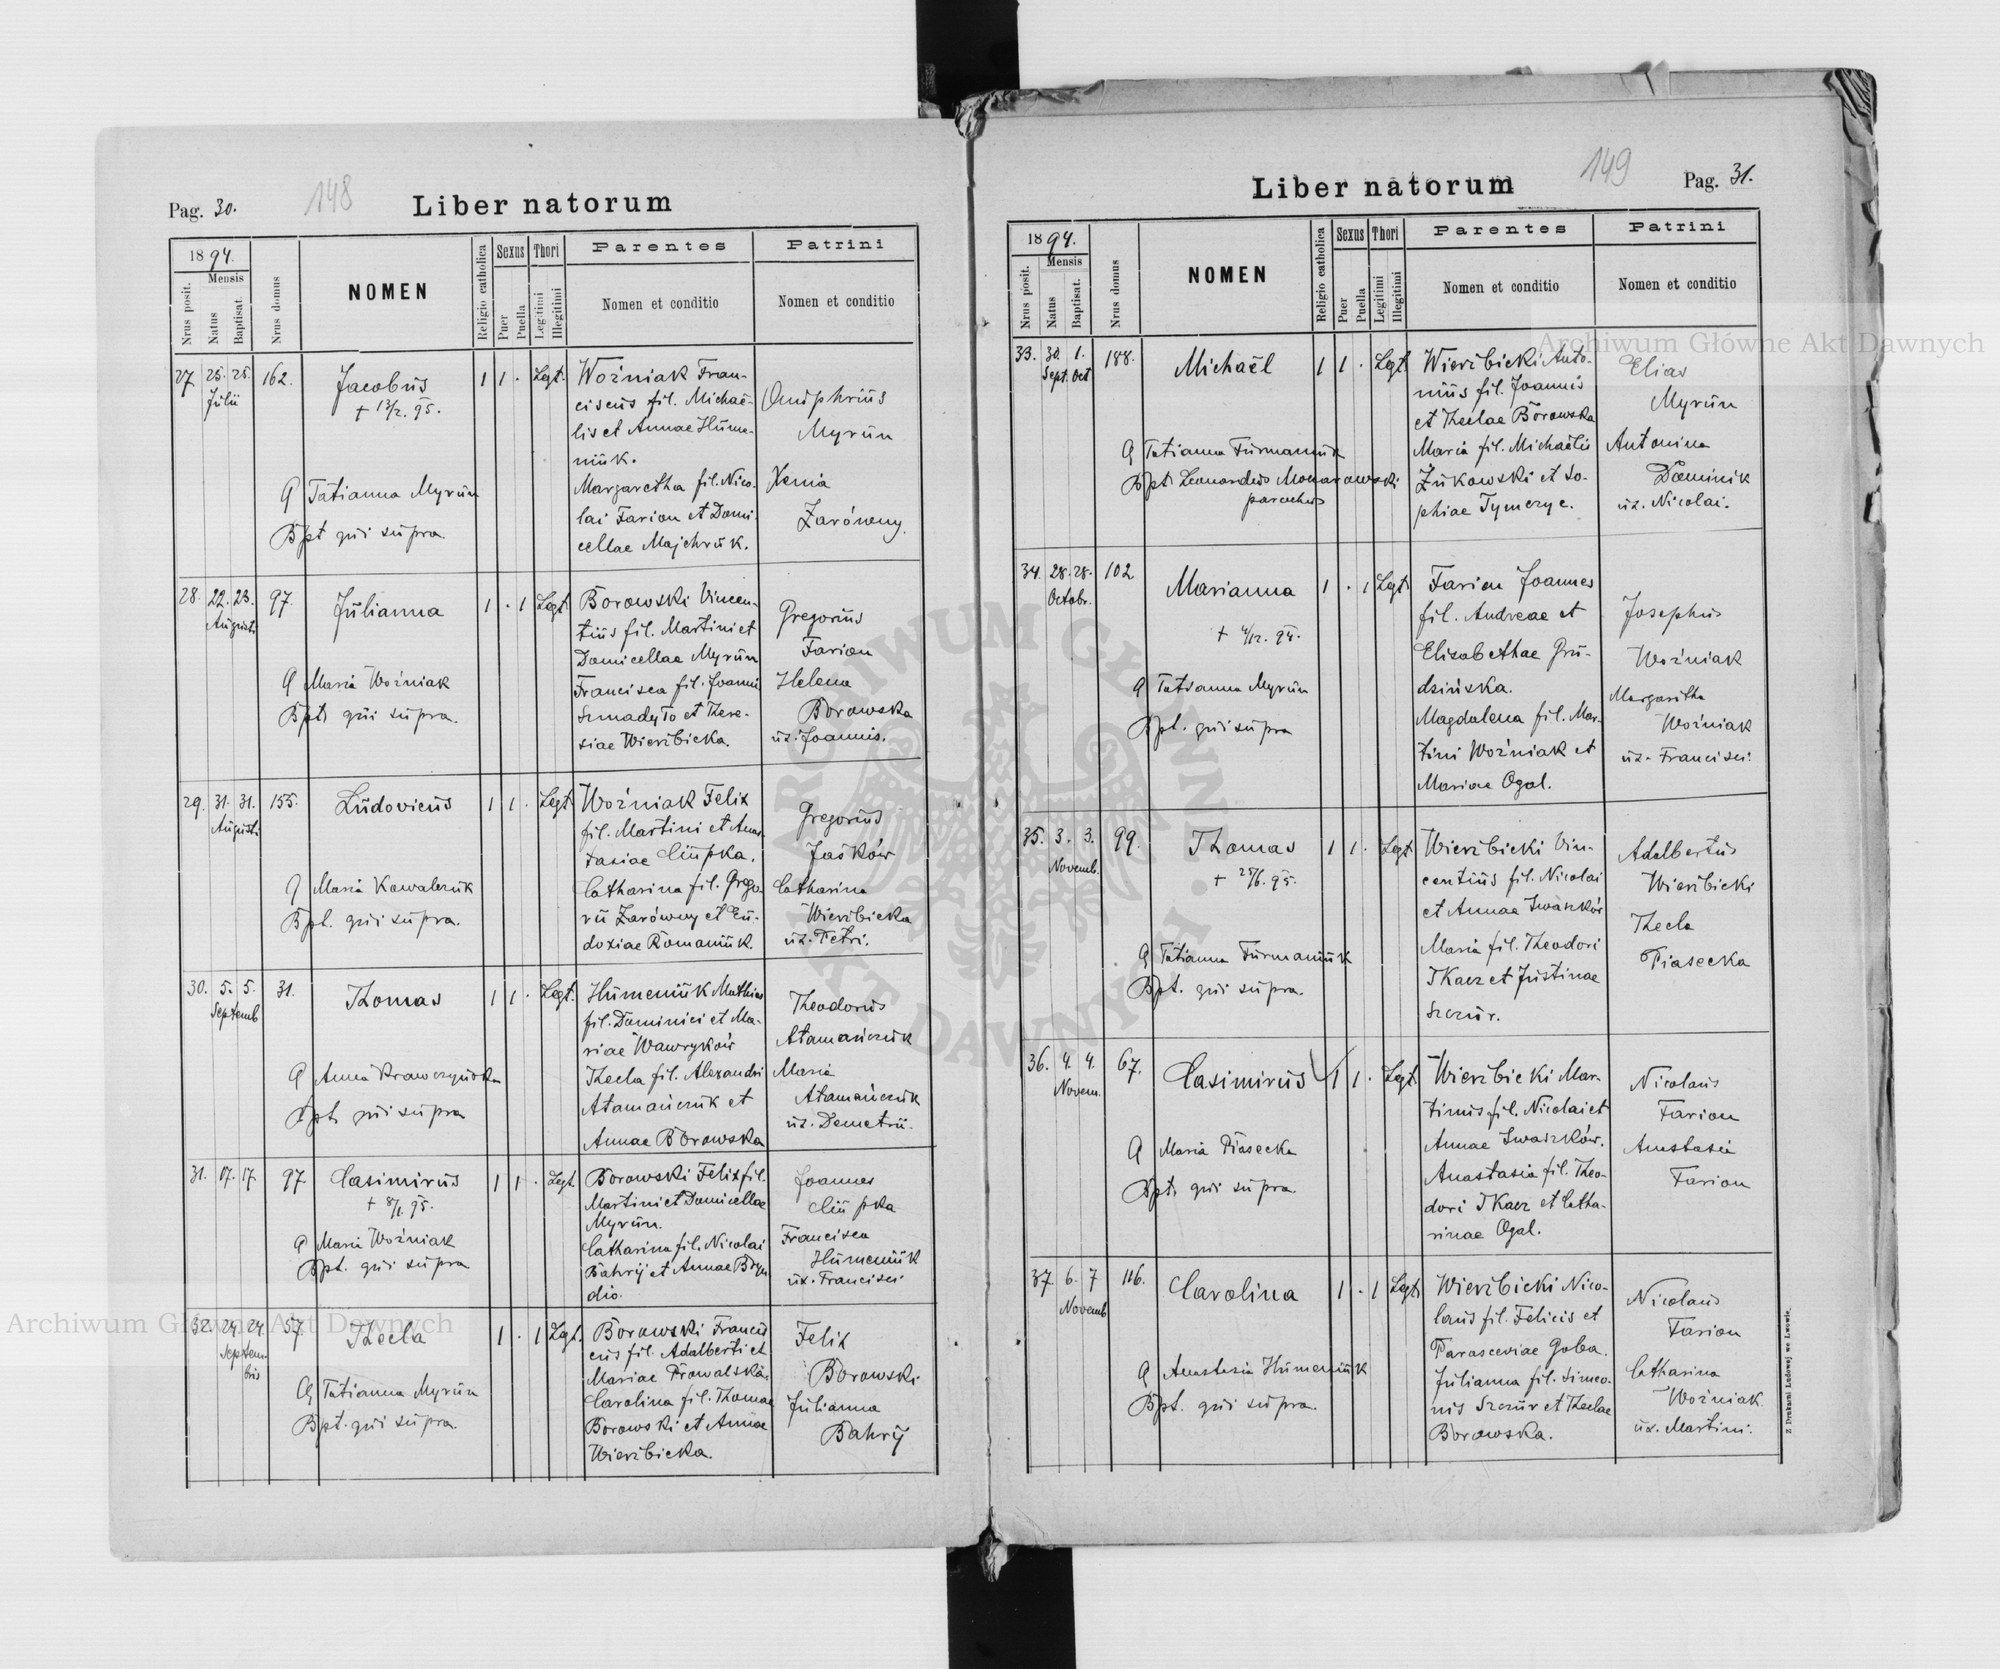 Pag. 30.
148
Liber natorum
1894.
Nrus posit.
Mensis
Natus
Baptisat.
Nrus domus
NOMEN
Religio catholica
Sexus
Puer
Puella
Thori
Legitimi
Illegitimi
Parentes
Nomen et conditio
Patrini
Nomen et conditio
27. 25. 25. 162. Jacobus 1 1 . Legt.
Julii
+ 13/2. 95.
Woźniak Fran-
ciscus fil. Michaë-
lis et Annae Hume-
niuk.
Margaretha fil. Nico-
lai Farion et Domi-
cellae Majchruk.
Onuphrius
Myrun
Xenia
Zarówny.
Tatianna Myrun
Bpt qui supra.
28. 22. 23. 97. Julianna 1 . 1 Legt.
Augusti
Borowski Vincen-
tius fil. Martini et
Domicellae Myrun
Francisca fil. Joannis
Szmadyło et There-
siae Wierzbicka.
Gregorius
Farion
Helena
Borowska
ux. Joannis.
Maria Woźniak
Bpt. qui supra.
29. 31. 31. 155. Ludovicus 1 1 . Legt.
Augusti
Woźniak Felix
fil. Martini et Anas-
tasiae Ciupka.
Catharina fil. Grego-
rii Zarówny et Eu-
doxiae Romaniuk.
Gregorius
Jaśków
Catharina
Wierzbicka
ux. Petri.
Maria Kowalczuk
Bpt. qui supra.
30. 5. 5. 31. Thomas 1 1 . Legt.
Septemb
Humeniuk Mathias
fil. Dominici et Ma-
riae Wawryków
Thecla fil. Alexandri
Atamańczuk et
Annae Borowska
Theodorus
Atamańczuk
Maria
Atamańczuk
ux. Demetrii.
Anna Krawczyńska
Bpt. qui supra
31. 17. 17. 97. Casimirus 1 1 . Legt
+ 8/1. 95.
Borowski Felix fil.
Martini et Domicellae
Myrun.
Catharina fil. Nicolai
Bahrij et Annae Bryn
dio.
Joannes
Ciupka
Francisca
Humeniuk
ux. Francisci
Maria Woźniak
Bpt. qui supra
32. 24. 24. 57. Thecla 1 . 1 Legt.
Septem-
bris
Borowski Francis
cus fil. Adalberti et
Mariae Prowalska.
Carolina fil. Thomae
Borowski et Annae
Wierzbicka.
Felix
Borowski
Julianna
Bahrij
Tatianna Myrun
Bpt. qui supra.
149
Liber natorum
Pag. 31.
1894.
Nrus posit.
Mensis
Natus
Baptisat.
Nrus domus
NOMEN
Religio catholica
Sexus
Puer
Puella
Thori
Legitimi
Illegitimi
Parentes
Nomen et conditio
Patrini
Nomen et conditio
33. 30. 1. 188. Michaël 1 1 . Legt
Sept. Oct
Wierzbicki Anto-
nius fil. Joannis
et Theclae Borowska
Maria fil. Michaëlis
Żukowski et So-
phiae Tymczyc.
Elias
Myrun
Antonina
Dominik
ux. Nicolai.
Tatianna Furmaniuk
Bpt. Leonardus Monarowski
parochus
34. 28. 28. 102. Marianna 1 . 1 Legt
Octobr.
+ 4/12. 94.
Farion Joannes
fil. Andreae et
Elisabethae Gru-
dzińska.
Magdalena fil. Mar-
tini Woźniak et
Mariae Ogal.
Josephus
Woźniak
Margaritha
Woźniak
ux. Francisci.
Tatianna Myrun
Bpt. qui supra
35. 3. 3. 99. Thomas 1 1 . Legt
Novemb.
+ 25/6. 95.
Wierzbicki Vin-
centius fil. Nicolai
et Annae Iwaszków
Maria fil. Theodori
Tkacz et Justinae
Szczur.
Adalbertus
Wierzbicki
Thecla
Piasecka
Tatianna Furmaniuk
Bpt. qui supra.
36. 4. 4. 67. Casimirus 1 1 . Legt
Novem.
Wierzbicki Mar-
tinus fil. Nicolai et
Annae Iwaszków.
Anastasia fil. Theo-
dori Tkacz et Catha-
rinae Ogal.
Nicolaus
Farion
Anastasia
Farion
Maria Piasecka
Bpt. qui supra.
37 6. 7 116. Carolina 1 . 1 Legt
Novemb
Wierzbicki Nico-
laus fil. Felicis et
Parasceviae Goba.
Julianna fil. Simeo-
nis Szczur et Theclae
Borowska.
Nicolaus
Farion
Catharina
Woźniak
ux. Martini.
Anastasia Humeniuk
Bpt. qui supra.
Z Drukarni Ludowej we Lwowie.
Archiwum Główne Akt Dawnych
Archiwum Główne Akt Dawnych
ARCHIWUM GŁÓWNE
AKT DAWNYCH